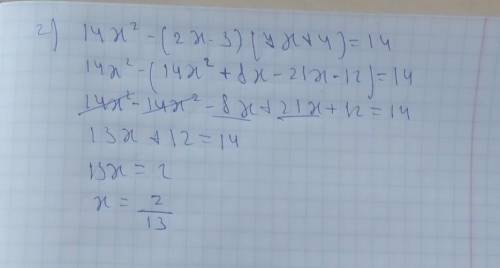 2) 14x² - (2x - 3)(7x + 4) = 14
14x² - (14x² + 8x - 21x - 12) = 14
14x² - 14x² - 8x + 21x + 12 = 14
13x + 12 = 14
13x = 2
x = 2/13